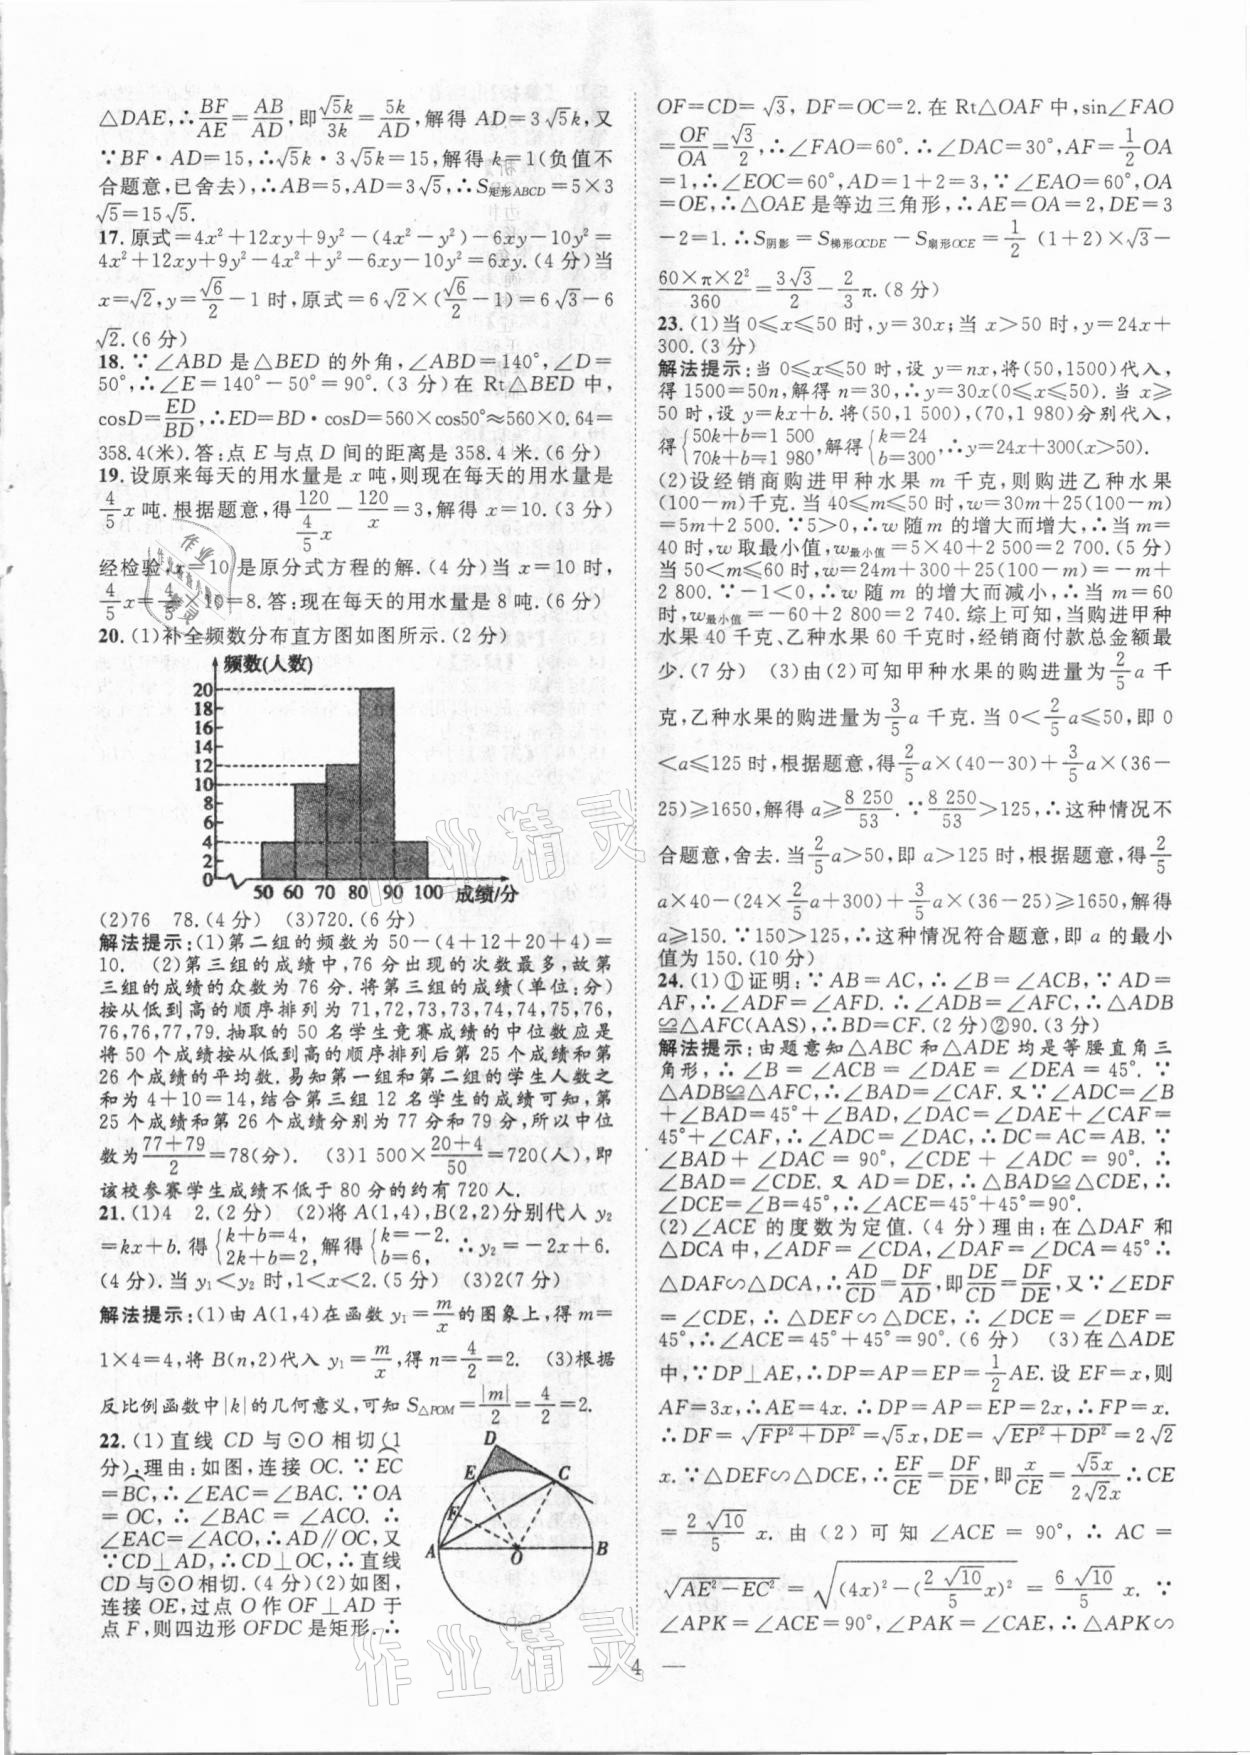 △DAE,∴BF/AE=AB/AD,即√5k/3k=5k/AD,解得 AD=3√5k,又
∵BF·AD=15,∴√5k·3√5k=15,解得 k=1(负值不
合题意,已舍去),∴AB=5,AD=3√5,∴S矩形ABCD=5×3
√5=15√5.
17. 原式=4x²+12xy+9y²-(4x²-y²)-6xy-10y²=
4x²+12xy+9y²-4x²+y²-6xy-10y²=6xy.(4 分)当
x=√2,y=√6/2-1 时,原式=6√2×(√6/2-1)=6√3-6
√2.(6 分)
18. ∵∠ABD 是△BED 的外角,∠ABD=140°,∠D=
50°,∴∠E=140°-50°=90°.(3 分)在 Rt△BED 中,
cosD=ED/BD,∴ED=BD·cosD=560×cos50°≈560×0.64=
358.4(米).答:点 E 与点 D 间的距离是 358.4 米.(6 分)
19. 设原来每天的用水量是 x 吨,则现在每天的用水量是
4/5 x 吨.根据题意,得 120/(4/5 x)-120/x=3,解得 x=10.(3 分)
经检验,x=10 是原分式方程的解.(4 分)当 x=10 时,
4/5 x=4/5×10=8.答:现在每天的用水量是 8 吨.(6 分)
20. (1)补全频数分布直方图如图所示.(2 分)
频数(人数)
20
18
16
14
12
10
8
6
4
2
0
50 60 70 80 90 100 成绩/分
(2)76 78.(4 分) (3)720.(6 分)
解法提示:(1)第二组的频数为 50-(4+12+20+4)=
10. (2)第三组的成绩中,76 分出现的次数最多,故第
三组的成绩的众数为 76 分.将第三组的成绩(单位:分)
按从低到高的顺序排列为 71,72,73,73,74,74,75,76,
76,76,77,79.抽取的 50 名学生竞赛成绩的中位数应是
将 50 个成绩按从低到高的顺序排列后第 25 个成绩和第
26 个成绩的平均数.易知第一组和第二组的学生人数之
和为 4+10=14,结合第三组 12 名学生的成绩可知,第
25 个成绩和第 26 个成绩分别为 77 分和 79 分,所以中位
数为(77+79)/2=78(分). (3)1 500×(20+4)/50=720(人),即
该校参赛学生成绩不低于 80 分的约有 720 人.
21. (1)4 2.(2 分) (2)将 A(1,4),B(2,2)分别代入 y₂
=kx+b.得{k+b=4, 2k+b=2,解得{k=-2. b=6, ∴y₂=-2x+6.
(4 分).当 y₁<y₂ 时,1<x<2.(5 分) (3)2(7 分)
解法提示:(1)由 A(1,4)在函数 y₁=m/x的图象上,得 m=
1×4=4,将 B(n,2)代入 y₁=m/x,得 n=4/2=2. (3)根据
反比例函数中|k|的几何意义,可知 S△POM=|m|/2=4/2=2.
22. (1)直线 CD 与⊙O 相切(1
分).理由:如图,连接 OC.∵EC
=BC,∴∠EAC=∠BAC.∵OA
=OC,∴∠BAC=∠ACO.∴
∠EAC=∠ACO,∴AD∥OC,又
∵CD⊥AD,∴CD⊥OC,∴直线
CD与⊙O相切.(4 分)(2)如图,
连接OE,过点 O 作 OF⊥AD 于
点 F,则四边形 OFDC 是矩形.∴
D
E
C
F
A
O
B
OF=CD=√3, DF=OC=2.在 Rt△OAF 中,sin∠FAO
=OF/OA=√3/2,∴∠FAO=60°.∴∠DAC=30°,AF=1/2 OA
=1,∴∠EOC=60°,AD=1+2=3,∵∠EAO=60°,OA
=OE,∴△OAE 是等边三角形,∴AE=OA=2,DE=3
-2=1.∴S阴影=S梯形OCDE-S扇形OCE=1/2 (1+2)×√3-
60×π×2²/360=3√3/2-2/3 π.(8 分)
23. (1)当 0⩽x⩽50 时,y=30x;当 x>50 时,y=24x+
300.(3 分)
解法提示:当 0⩽x⩽50 时,设 y=nx,将(50,1500)代入,
得 1500=50n,解得 n=30,∴y=30x(0⩽x⩽50).当 x⩾
50 时,设 y=kx+b.将(50,1 500),(70,1 980)分别代入,
得{50k+b=1 500 70k+b=1 980,解得{k=24 b=300,∴y=24x+300(x>50).
(2)设经销商购进甲种水果 m 千克,则购进乙种水果
(100-m)千克.当 40⩽m⩽50 时,w=30m+25(100-m)
=5m+2 500.∵5>0,∴w 随 m 的增大而增大,∴当 m=
40 时,w 取最小值,w最小值=5×40+2 500=2 700.(5 分)
当 50<m⩽60 时,w=24m+300+25(100-m)=-m+
2 800.∵-1<0,∴w 随 m 的增大而减小,∴当 m=60
时,w最小值=-60+2 800=2 740.综上可知,当购进甲种
水果 40 千克、乙种水果 60 千克时,经销商付款总金额最
少.(7 分) (3)由(2)可知甲种水果的购进量为2/5 a 千
克,乙种水果的购进量为3/5 a 千克.当 0<2/5 a⩽50,即 0
<a⩽125 时,根据题意,得2/5 a×(40-30)+3/5 a×(36-
25)⩾1650,解得 a⩾8 250/53.∵8 250/53>125,∴这种情况不
合题意,舍去.当2/5 a>50,即 a>125 时,根据题意,得2/5
a×40-(24×2/5 a+300)+3/5 a×(36-25)⩾1650,解得
a⩾150.∵150>125,∴这种情况符合题意,即 a 的最小
值为 150.(10 分)
24. (1)①证明:∵AB=AC,∴∠B=∠ACB,∵AD=
AF,∴∠ADF=∠AFD.∴∠ADB=∠AFC,∴△ADB
≌△AFC(AAS),∴BD=CF.(2 分)②90.(3 分)
解法提示:由题意知△ABC 和△ADE 均是等腰直角三
角形,∴∠B=∠ACB=∠DAE=∠DEA=45°.∵
△ADB≌△AFC,∴∠BAD=∠CAF.又∵∠ADC=∠B
+∠BAD=45°+∠BAD,∠DAC=∠DAE+∠CAF=
45°+∠CAF,∴∠ADC=∠DAC,∴DC=AC=AB.∵
∠BAD+∠DAC=90°,∠CDE+∠ADC=90°.∴
∠BAD=∠CDE.又 AD=DE,∴△BAD≌△CDE,∴
∠DCE=∠B=45°,∴∠ACE=45°+45°=90°.
(2)∠ACE 的度数为定值.(4 分)理由:在△DAF 和
△DCA 中,∠ADF=∠CDA,∠DAF=∠DCA=45°∴
△DAF∽△DCA,∴AD/CD=DF/AD,即DE/CD=DF/DE,又∵∠EDF
=∠CDE,∴△DEF∽△DCE,∴∠DCE=∠DEF=
45°,∴∠ACE=45°+45°=90°.(6 分) (3)在△ADE
中,∵DP⊥AE,∴DP=AP=EP=1/2 AE.设 EF=x,则
AF=3x,∴AE=4x.∴DP=AP=EP=2x,∴FP=x.
∴DF=√(FP²+DP²)=√5x,DE=√(EP²+DP²)=2√2
x.∵△DEF∽△DCE,∴EF/CE=DF/DE,即x/CE=√5x/2√2x ∴CE
=2√10/5 x.由(2)可知∠ACE=90°,∴AC=
√(AE²-EC²)=√((4x)²-(2√10/5 x)²)=6√10/5 x.∵
∠APK=∠ACE=90°,∠PAK=∠CAE,∴△APK∽
— 4 —
作业精灵
作业精灵